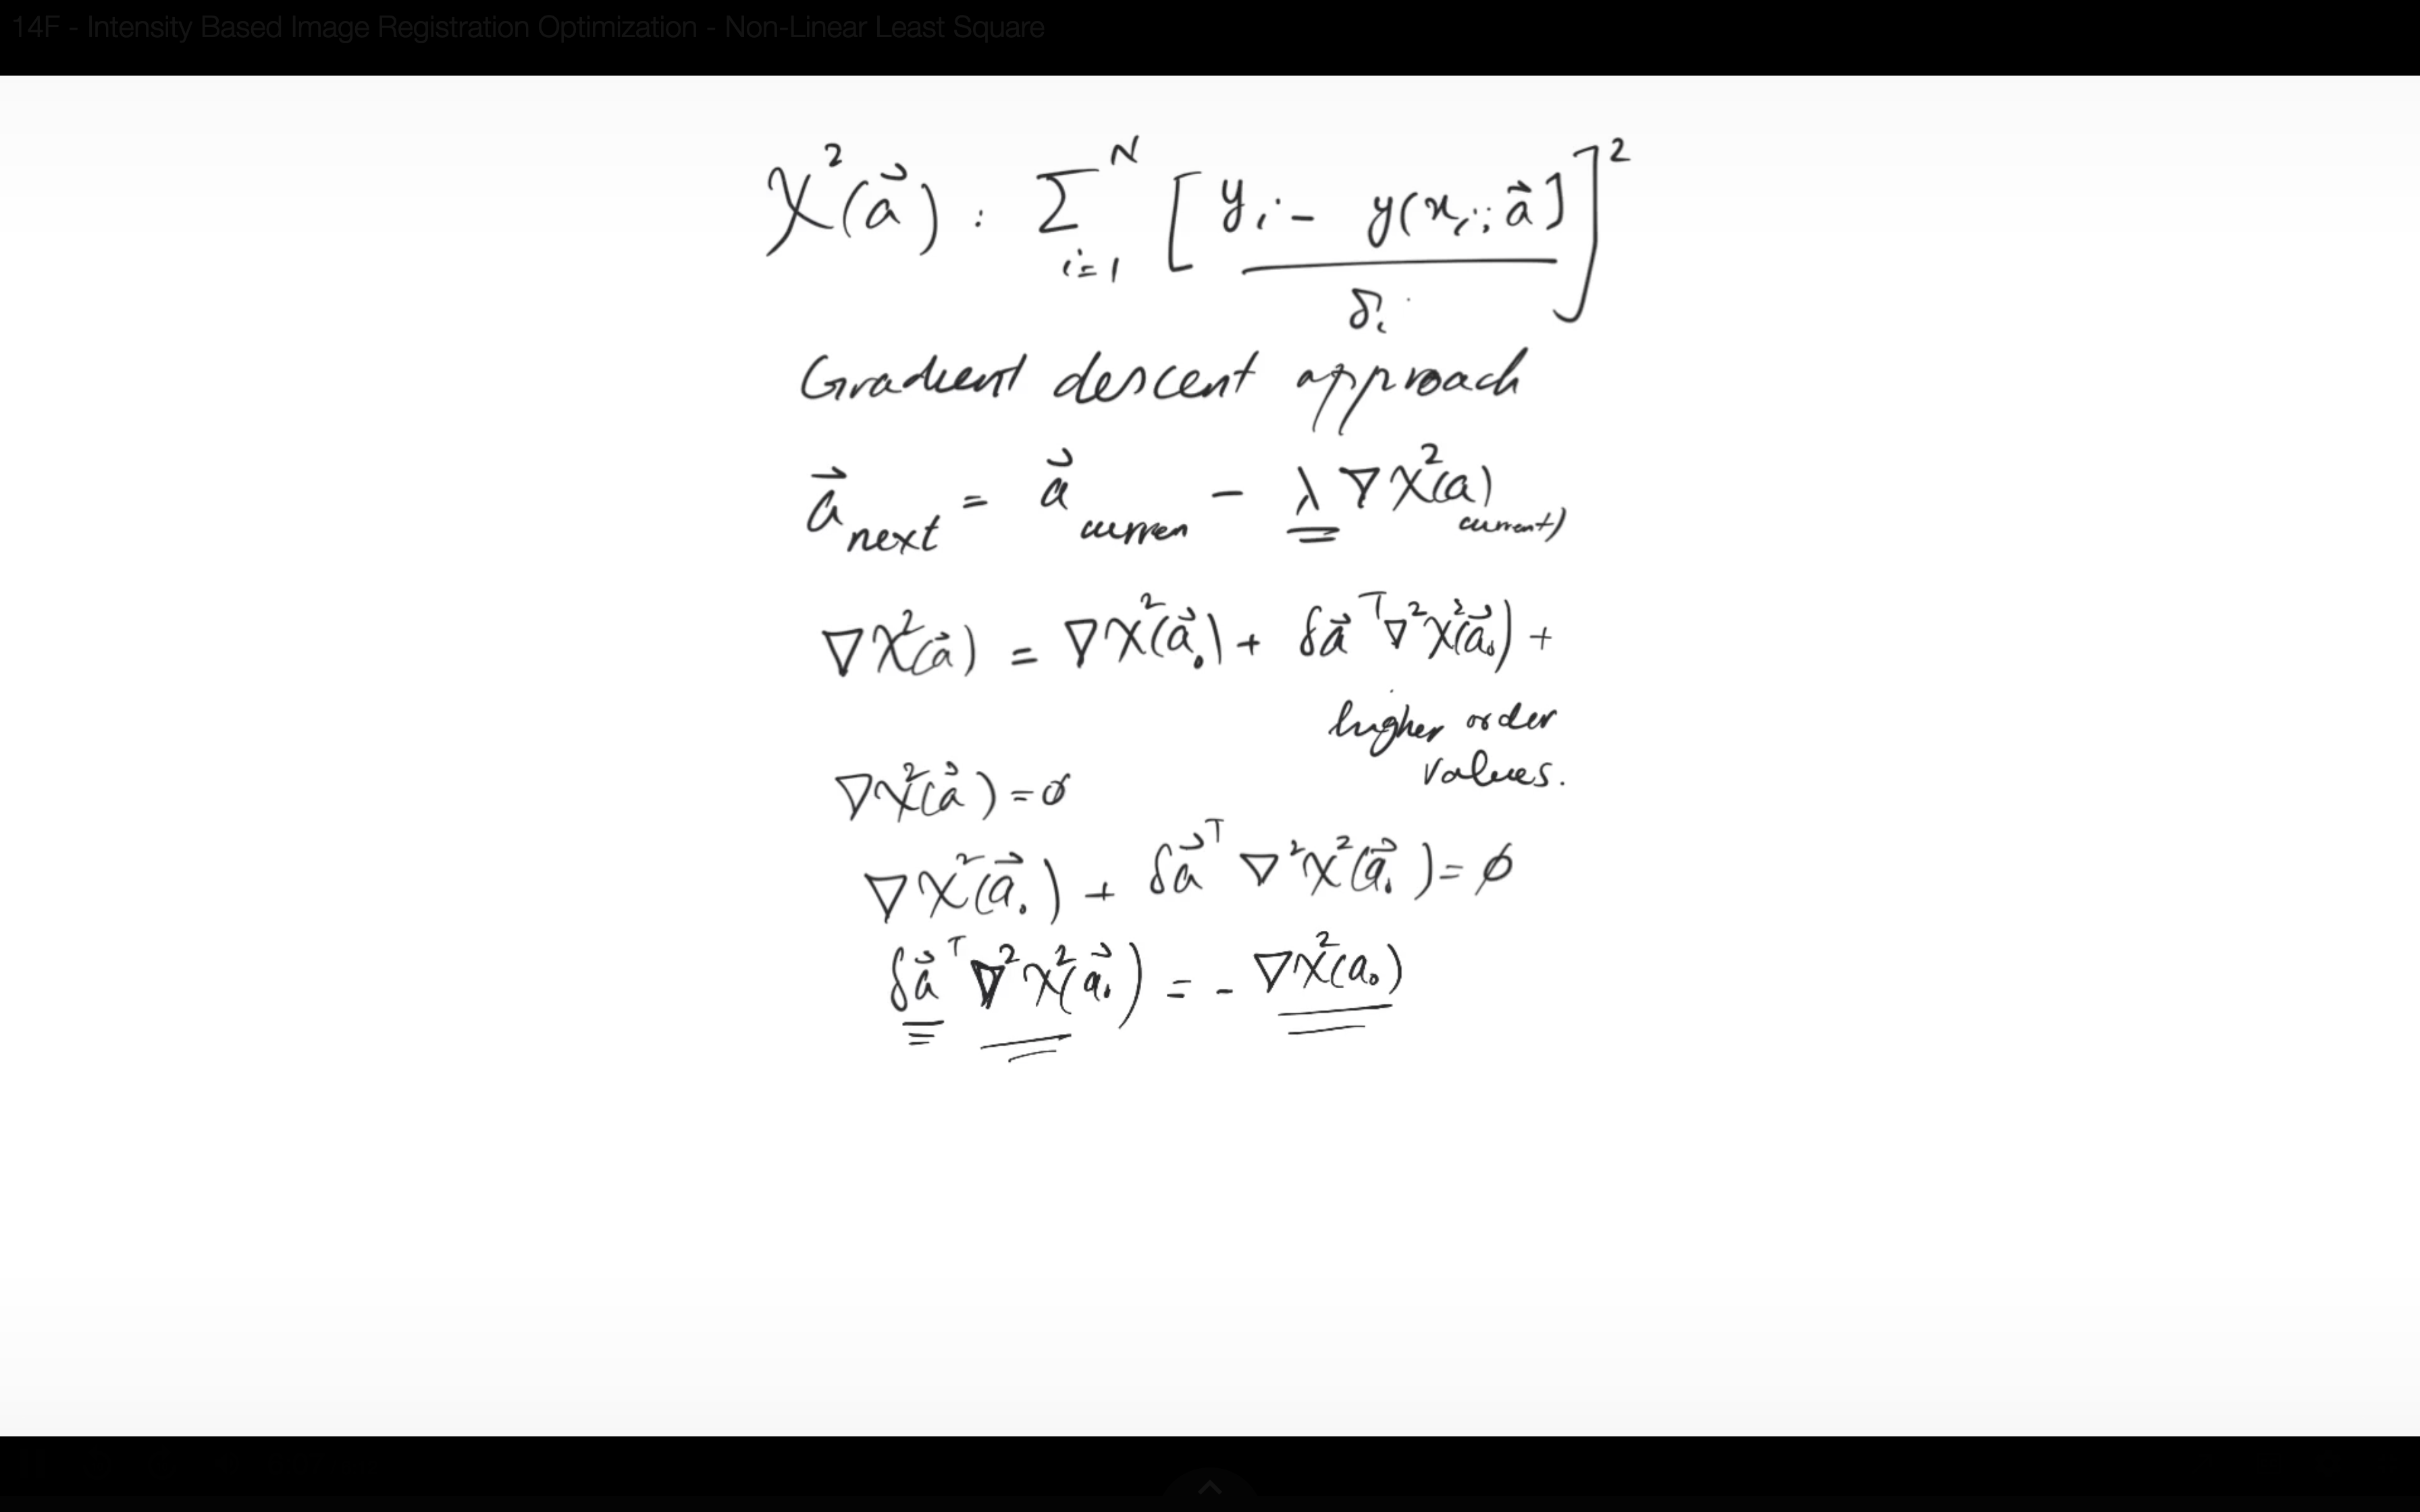 14F - Intensity Based Image Registration Optimization - Non-Linear Least Square
χ²(a⃗) : Σᵢ₌₁ᴺ [ yᵢ - y(xᵢ; a⃗] / δᵢ ]²
Gradient descent approach
a⃗ next = a⃗ curren - λ ∇χ²(a) current)
∇χ²(a⃗) = ∇χ²(a⃗₀) + δa⃗ᵀ ∇²χ²(a⃗₀) +
higher order
values.
∇χ²(a⃗) = 0
∇χ²(a⃗₀) + δa⃗ᵀ ∇²χ²(a⃗₀) = 0
δa⃗ᵀ ∇²χ²(a⃗₀) = - ∇χ²(a₀)